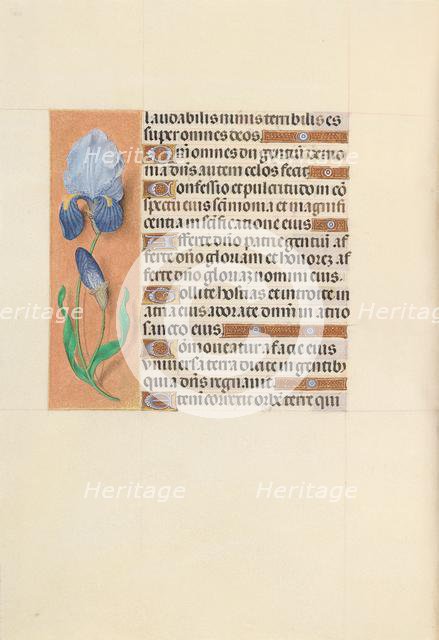 laudabilis nimis terribilis es
super omnes deos.
Qm̄ omnes dii gentiū demo
nia dn̄s autem celos fecit.
Confessio et pulcritudo in cō
spectu eius sc̄imonia et magnifi
centia in sc̄ificatione eius
Afferte dn̄o patrie gentiū af
ferte dn̄o gloriam et honorez af
ferte dn̄o gloriaz nomini eius.
Tollite hostias et introite in
atria eius adorate dn̄m in atrio
sancto eius
Com̄oueatur a facie eius
vniuersa terra dicite in gentib9
quia dn̄s regnauit
Eteni correxit orbē terre qui
Heritage
Heritage
Heritage
Heritage
Heritage
Heritage
Heritage
Heritage